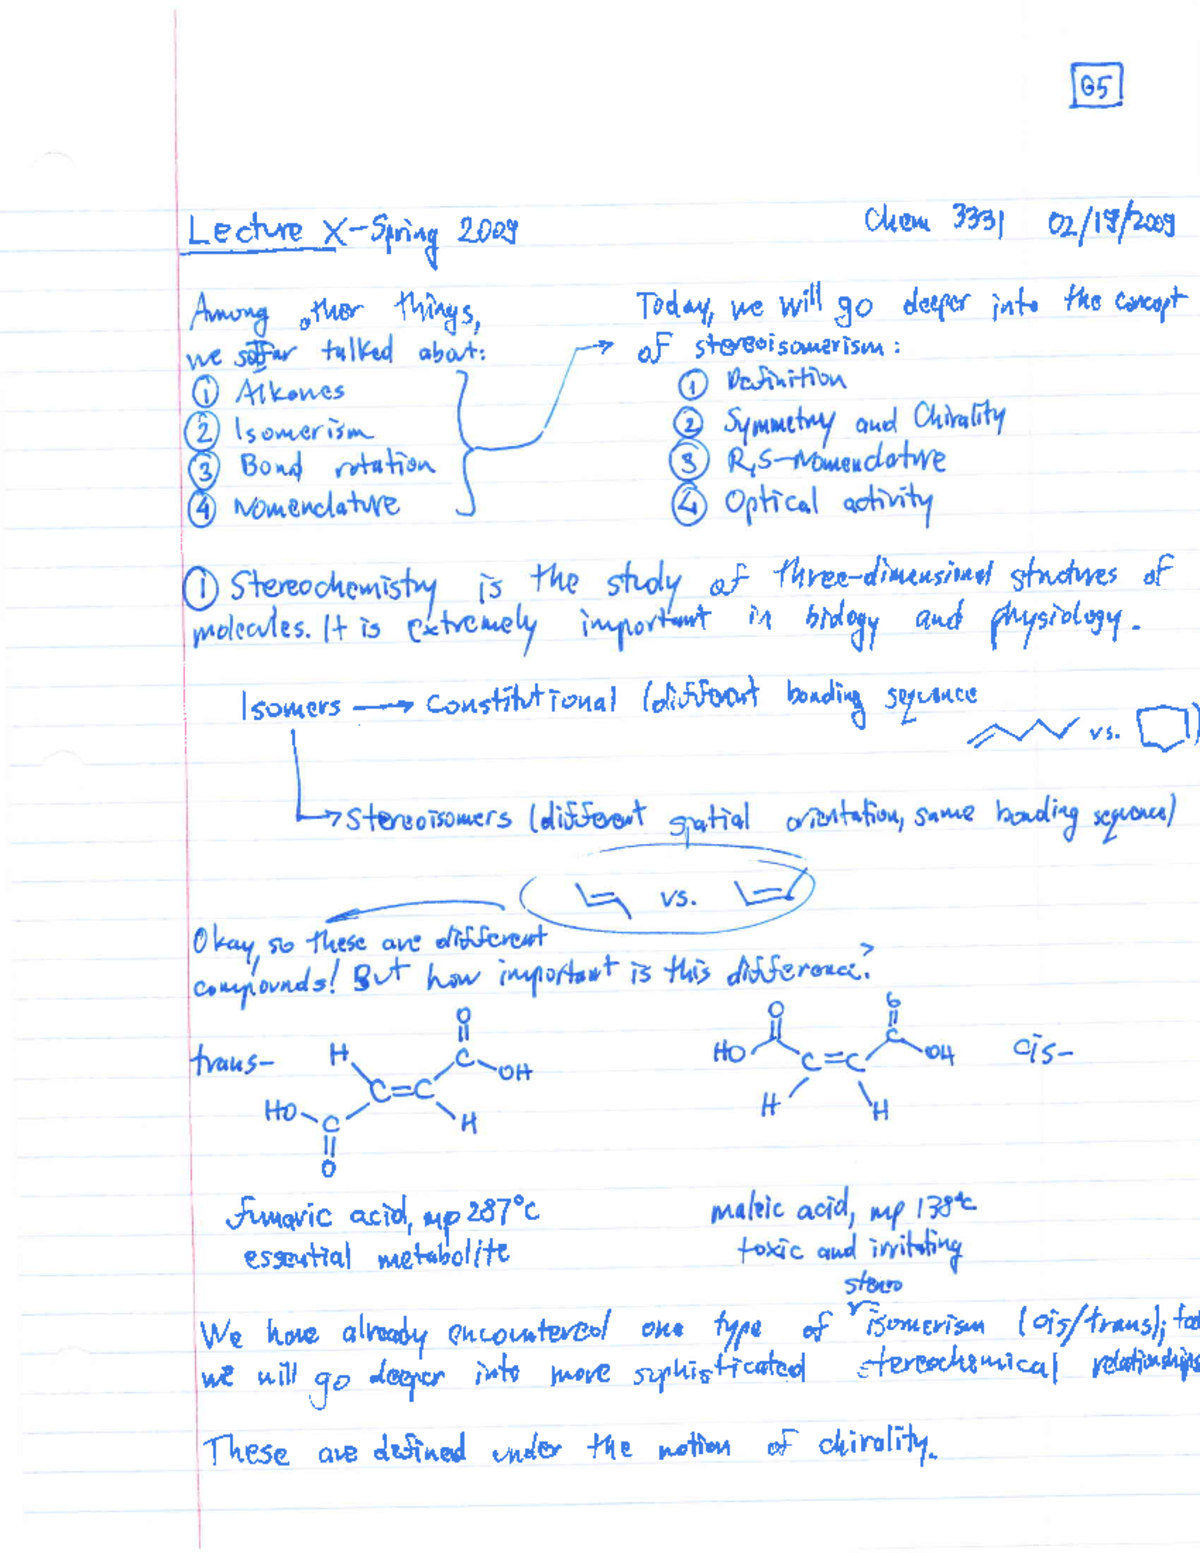 85
Lecture X-Spring 2009
Chem 3331 02/17/2009
Among other things,
we so far talked about:
① Alkanes
② Isomerism
③ Bond rotation
④ Nomenclature
Today, we will go deeper into the concept
of stereoisomerism:
① Definition
② Symmetry and Chirality
③ R,S-Nomenclature
④ Optical activity
① Stereochemistry is the study of three-dimensional structures of
molecules. It is extremely important in biology and physiology.
Isomers → Constitutional (different bonding sequence
vs. )
→ Stereoisomers (different spatial orientation, same bonding sequence)
vs.
Okay, so these are different
compounds! But how important is this difference?
trans-
H O C OH C=C HO C H O
O O HO C C=C OH H H
cis-
fumaric acid, mp 287°C
essential metabolite
maleic acid, mp 138°C
toxic and irritating
stereo
We have already encountered one type of isomerism (cis/trans);
we will go deeper into more sophisticated stereochemical relationships
These are defined under the notion of chirality.